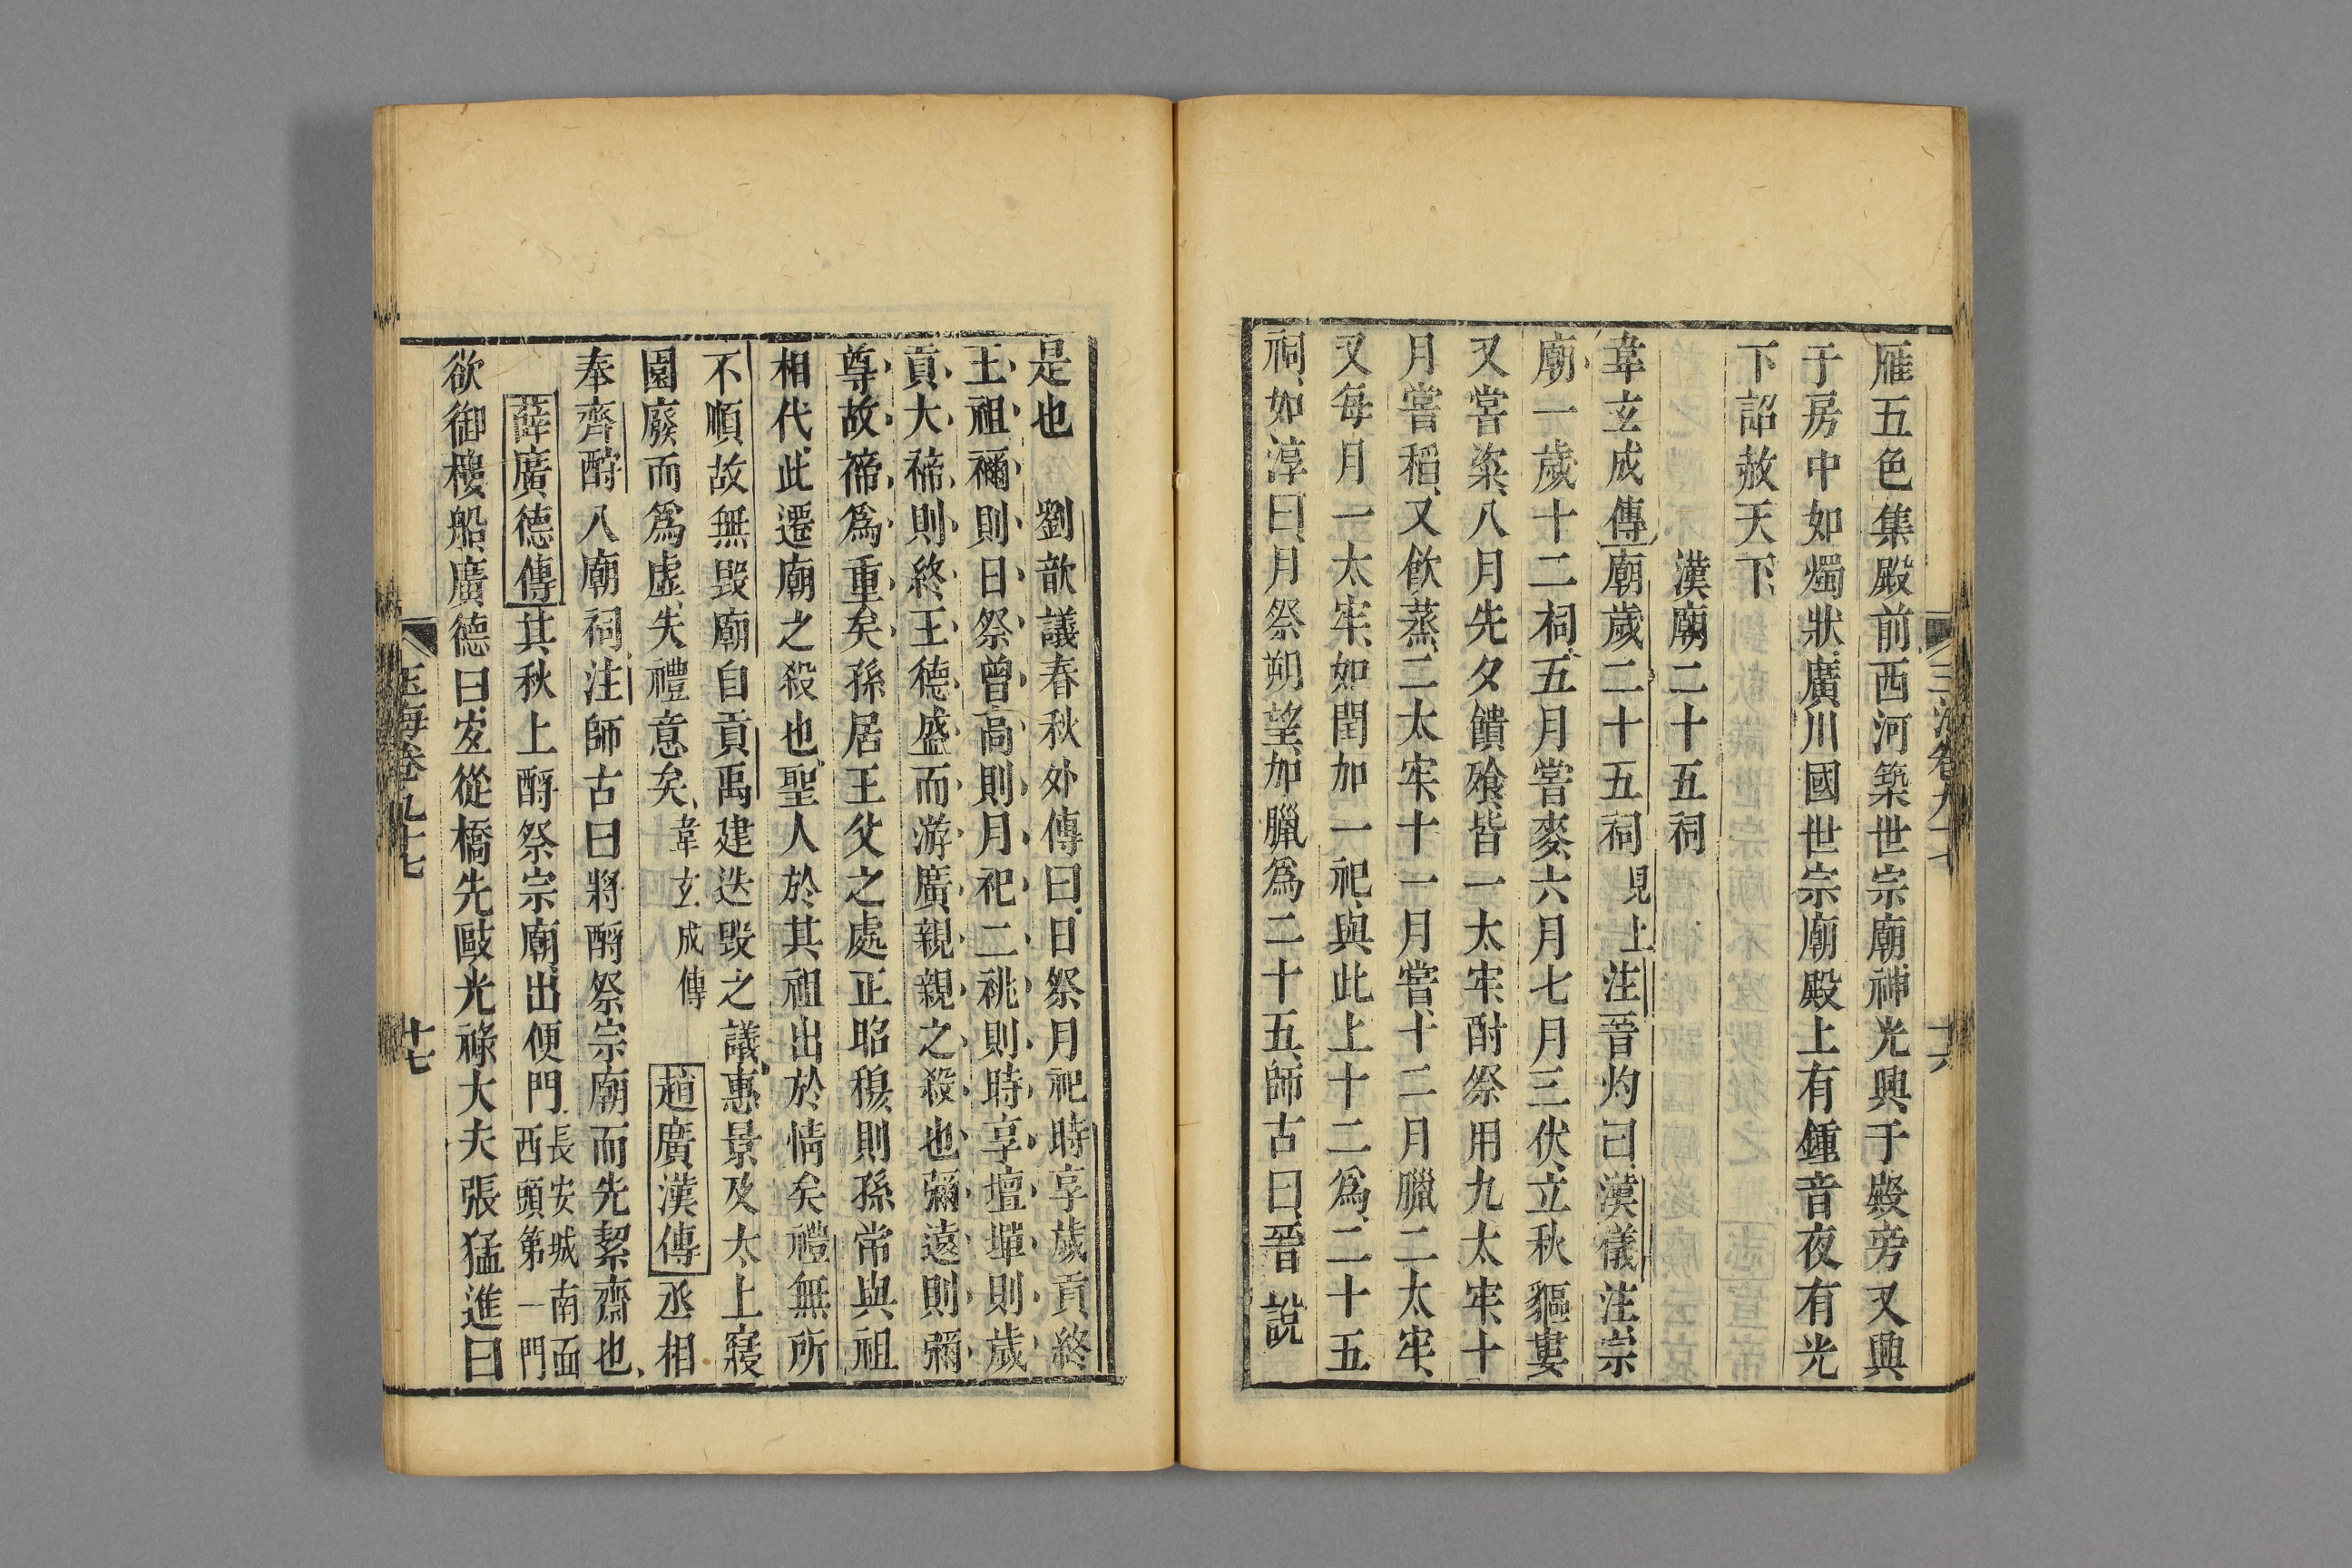 雁五色集殿前西河築世宗廟神光興于殿旁又興
于房中如燭狀廣川國世宗廟殿上有鍾音夜有光
下詔赦天下
漢廟二十五祠
韋玄成傳廟歲二十五祠見上注晉灼曰漢儀注宗
廟一歲十二祠五月嘗麥六月七月三伏立秋貙婁
又嘗粢八月先夕饋飱皆一太牢酎祭用九太牢十
月嘗稻又飲蒸二太牢十一月嘗十二月臘二太牢
又每月一太牢如閏加一祀與此上十二爲二十五
祠如淳曰月祭朔望加臘爲二十五師古曰晉說
是也 劉歆議春秋外傳曰日祭月祀時享歲貢終
王祖禰則日祭曾高則月祀二祧則時享壇墠則歲
貢大禘則終王德盛而游廣親親之殺也彌遠則彌
尊故禘爲重矣孫居王父之處正昭穆則孫常與祖
相代此遷廟之殺也聖人於其祖出於情矣禮無所
不順故無毀廟自貢禹建迭毀之議惠景及太上寢
園廢而爲虛失禮意矣韋玄成傳 趙廣漢傳丞相
奉齊酎入廟祠注師古曰將酎祭宗廟而先絜齋也
薛廣德傳其秋上酎祭宗廟出便門長安城南面西頭第一門
欲御樓船廣德曰宜從橋先敺光祿大夫張猛進曰
玉海卷九十七
十七